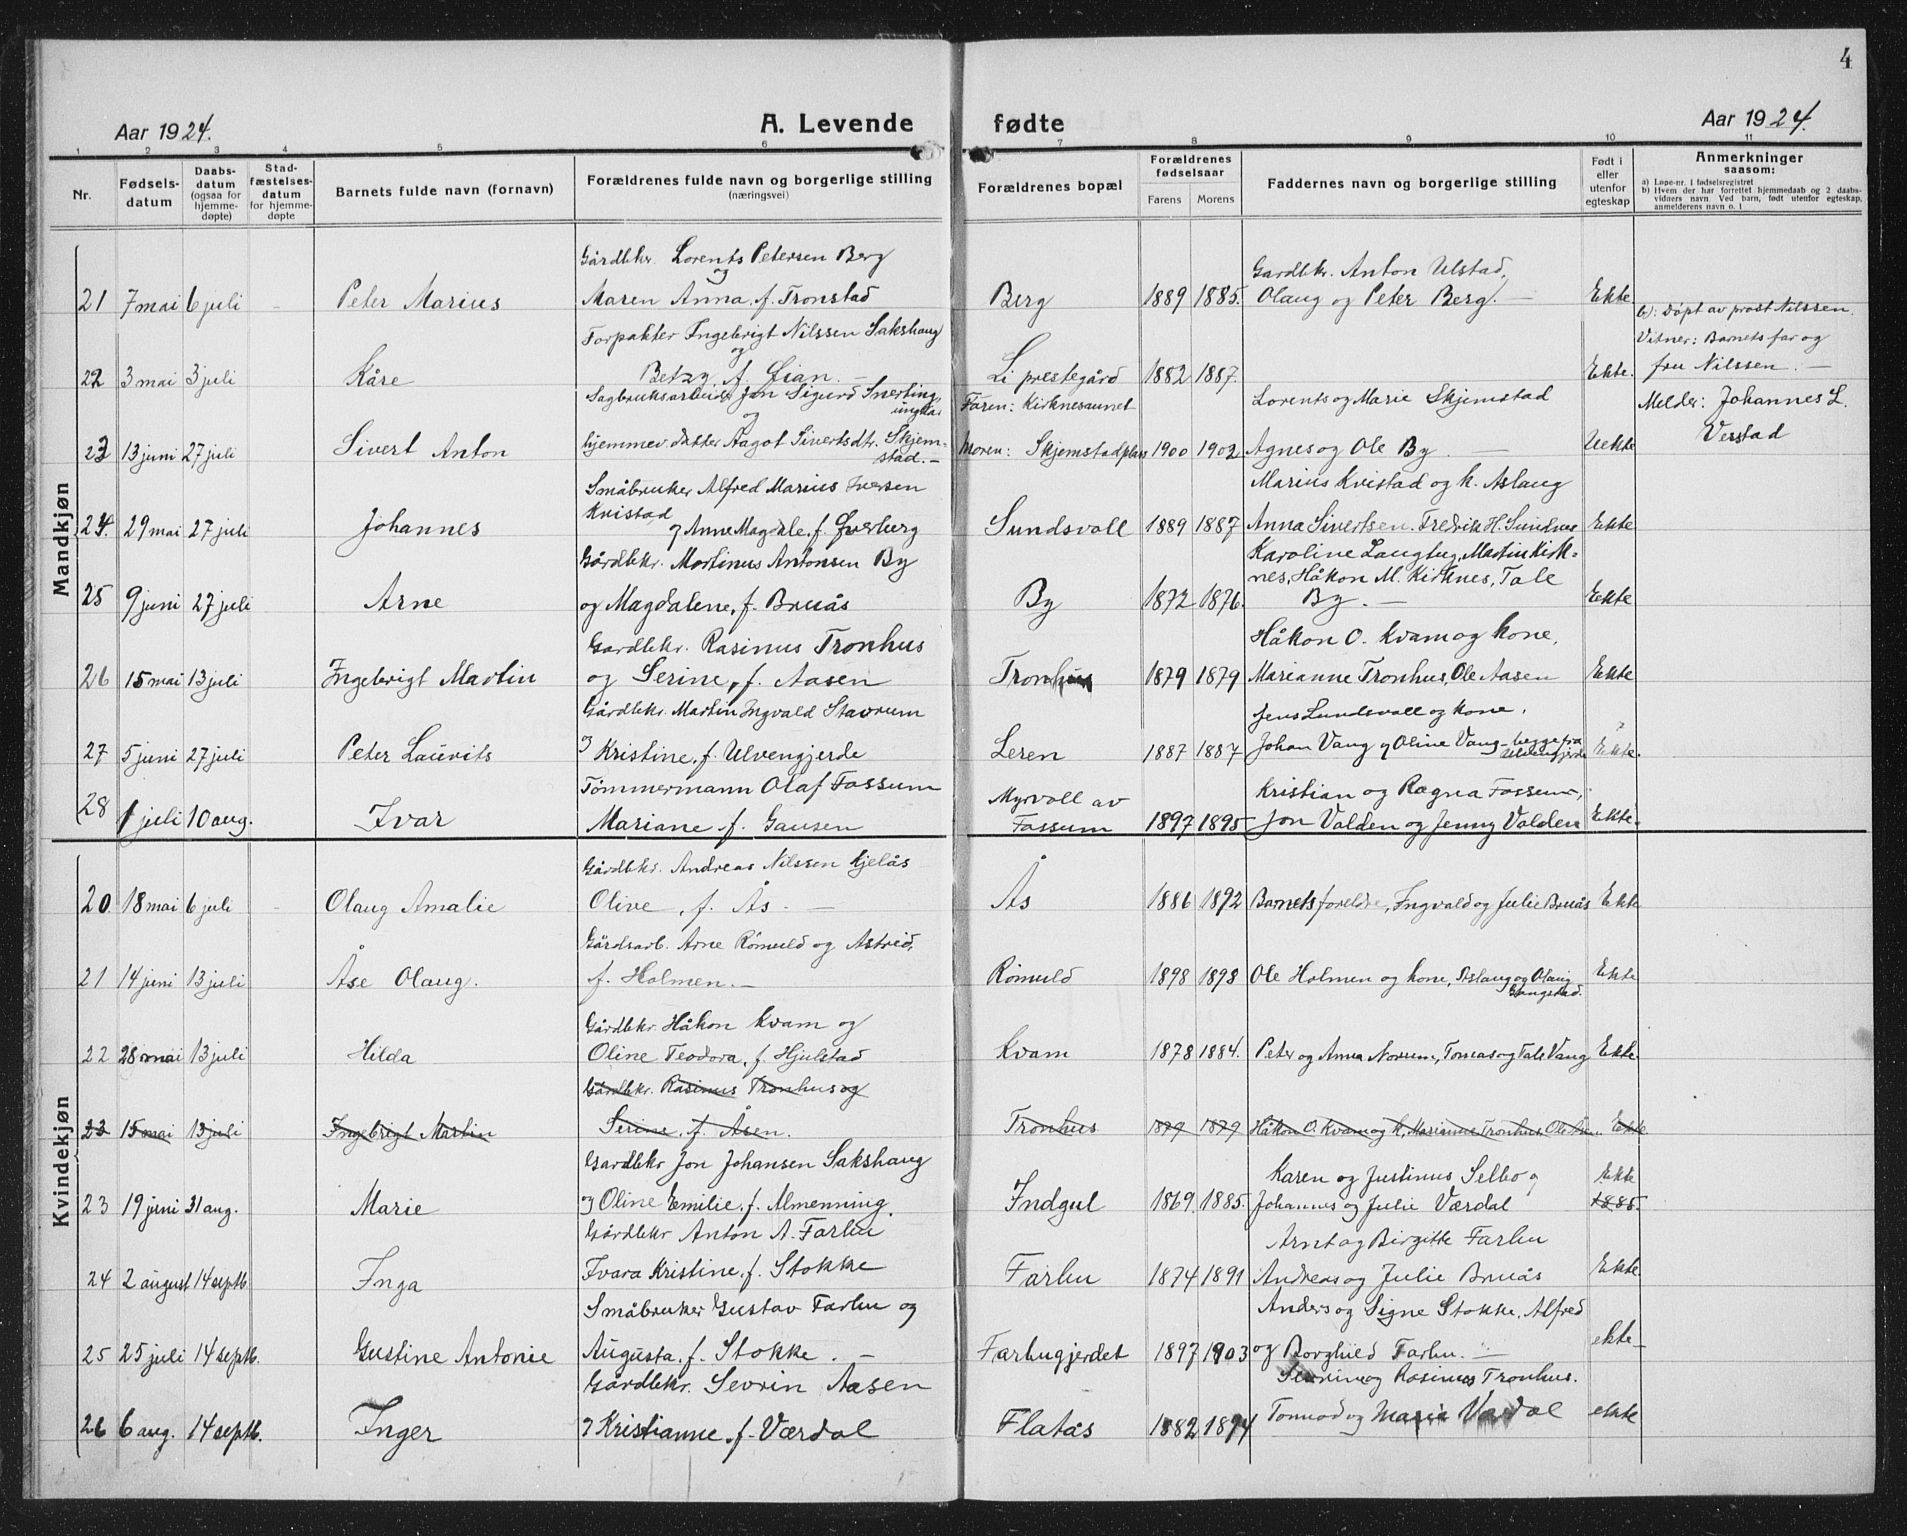 4
Aar 1924.
A. Levende
fødte
Aar 1924.
1 2 3 4 5 6 7 8 9 10 11
Nr.
Fødsels-
datum
Daabs-
datum
(ogsaa for
hjemme-
døpte)
Stad-
fæstelses-
datum
for hjemme-
døpte
Barnets fulde navn (fornavn)
Forældrenes fulde navn og borgerlige stilling
(næringsvei)
Forældrenes bopæl
Forældrenes
fødselsaar
Farens Morens
Faddernes navn og borgerlige stilling
Født i
eller
utenfor
egteskap
Anmerkninger
saasom:
a) Løpe-nr. i fødselsregistret
b) Hvem der har forrettet hjemmedaab og 2 daabs-
vidners navn. Ved barn, født utenfor egteskap,
anmelderens navn o. l
Mandkjøn
Gårdbkr. Lorents Petersen Berg
og
Gardbkr. Anton Ulstad,
21 7 mai 6 juli - Peter Marius Maren Anna, f. Tronstad Berg 1889 1885. Olaug og Peter Berg. - Ekte
Forpakter Ingebrigt Nilssen Sakshaug
og
b): Døpt av prost Nilssen.
Vitner: Barnets far og
22 3 mai 3 juli Kåre Betzy, f. Øian. - Li prestegård 1882 1887. Ekte. fru Nilssen. -
Sagbruksarbeider Jon Sigurd Snerting,
og
Faren: Kirknesaunet
Lorents og Marie Skjemstad
Melder: Johannes L.
Verstad
23 13 juni 27 juli Sivert Anton hjemmev. datter Aagot Sivertsdtr. Skjem-
stad. -
Moren: Skjemstadplass 1900 1902 Agnes og Ole By. - Uekte
Småbruker Alfred Marius Iversen
Kvistad
Marius Kvistad og k. Aslaug
24. 29 mai 27 juli Johannes og Anne Magdale. f. Øverberg Sundsvoll 1889 1887 Anna Sivertsen. Fredrik H. Sundnes Ekte
Gårdbkr. Martinus Antonsen By
Karoline Langtug, Martin Kirk-
nes, Håkon M. Kirknes, Tale
25 9 juni 27 juli Arne og Magdalene, f. Bruås By 1872 1876. By. - Eekte
Gardbkr. Rasinus Tronhus
Håkon O. Kvam og kone,
26 15 mai 13 juli Ingebrigt Martin og Serine, f. Aasen Tronhus 1879 1879 Marianne Tronhus, Ole Aasen Ekte
Gårdbkr. Martin Ingvald Stavrum
Jens Lundsvoll og kone.
27 5 juni 27 juli Peter Laurits og Kristine, f. Ulvengjerde Leren 1887 1887 Johan Vang og Oline Vang - begge fra
Ekte.
Tømmermann Olaf Fossum
Myrvoll av
Kristian og Ragna Fossum,
28 1 juli 10 aug. Ivar Mariane f. Gausen Fossum 1897 1895 Jon Valden og Jenny Valden Ekte.
Kvindekjøn
Gårdbkr. Andreas Nilssen Kjelås
20 18 mai 6 juli - Olaug Amalie Olive, f. Ås. - Ås 1886 1892 Barnets foreldre, Ingvald og Julie Bruås Ekte
Gårdsarb. Arne Rømuld og Astrid,
21 14 juni 13 juli Åse Olaug. f. Holmen. - Rømuld 1898 1898 Ole Holmen og kone, Aslaug og Olaug
Gangstad.
Ekte
Gårdbkr. Håkon Kvam og
22 28 mai 13 juli Hilda Oline Teodora, f. Hjulstad Kvam 1878 1884. Peter og Anna Norum, Tomas og Tale Vang Ekte.
Gårdbkr. Rasinus Tronhus og
23 15 mai 13 juli Ingebrigt Martin Serine, f. Åsen. Tronhus 1879 1879 Håkon O. Kvam og k, Marianne Tronhus, Ole Åsen. Ekte
Gardbkr Jon Johansen Sakshaug
Karen og Justinus Selbo og
Ekte
23 19 juni 31 aug. Marie og Oline Emilie, f. Almenning. Indgul 1869. 1885. Johannes og Julie Værdal 1885.
Gårdbkr Anton A. Farbu
Arnt og Birgitte Farbu
24 2 august 14 septb. Inga Ivara Kristine, f. Stokke Farbu 1874 1891 Andreas og Julie Bruås Ekte.
Småbruker Gustav Farbu og
Anders og Signe Stokke, Alfred
25 25 juli 14 septb. Gustine Antonie Augusta, f. Stokke. - Farbugjerdet 1897 1903 og Borghild Farbu. - ekte-
Gårdbkr. Sevrin Aasen
og Rasinus Tronhus.
26 6 aug. 14 septb. Inger og Kristianne, f. Værdal Flatås 1882 1894 og Maria Værdal ekte